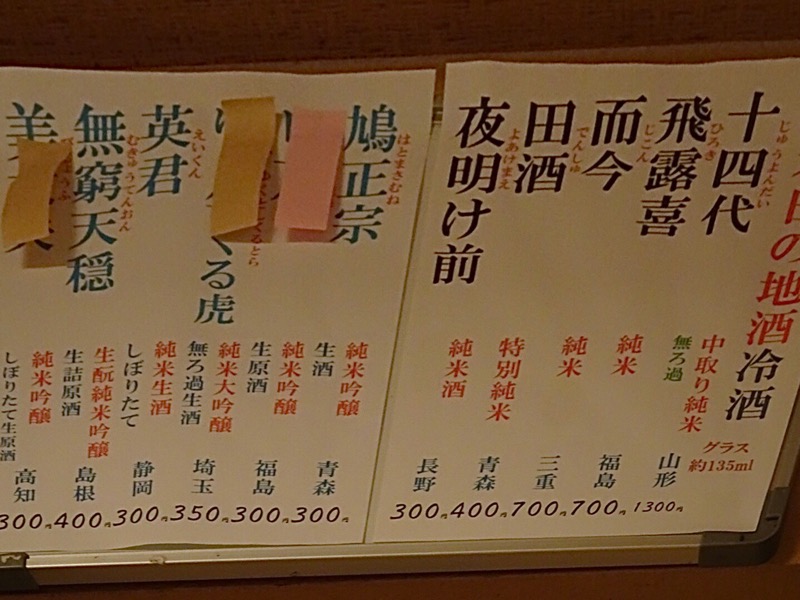 日の地酒 冷酒
グラス
約135ml
十四代
じゅうよんだい
中取り純米
無ろ過
山形
1300円
飛露喜
ひろき
純米
福島
700円
而今
じこん
純米
三重
700円
田酒
でんしゅ
特別純米
青森
400円
夜明け前
よあけまえ
純米酒
長野
300円
鳩正宗
はとまさむね
純米吟醸
生酒
青森
300円
純米吟醸
生原酒
福島
300円
くる虎
くるとら
純米大吟醸
無ろ過生酒
埼玉
350円
英君
えいくん
純米生酒
しぼりたて
静岡
300円
無窮天穏
むきゅうてんおん
生酛純米吟醸
生詰原酒
島根
400円
美
純米吟醸
しぼりたて生原酒
高知
300円